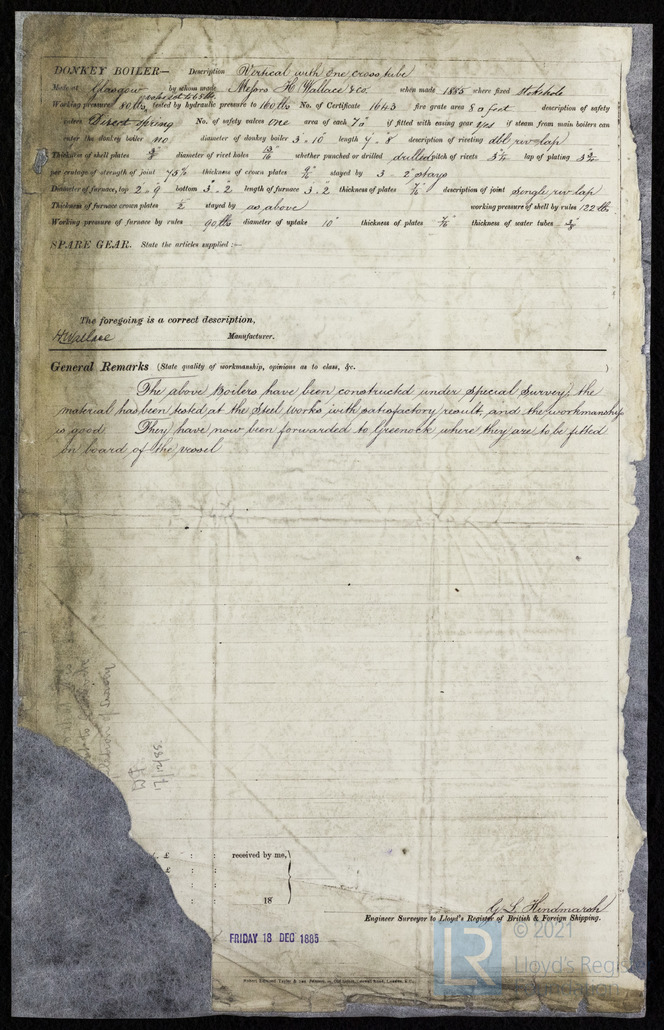 DONKEY BOILER— Description Vertical with one cross tube
Made at Glasgow by whom made Messrs H Wallace & Co. when made 1885 where fixed Stokehole
Working pressure 80 lbs tested by hydraulic pressure to 160 lbs No. of Certificate 1643 fire grate area 8 a feet description of safety
valves Direct spring No. of safety valves one area of each 7 a" if fitted with easing gear yes if steam from main boilers can
enter the donkey boiler no diameter of donkey boiler 3'.10 length 7'.8 description of riveting dbl riv lap
Thickness of shell plates diameter of rivet holes 13/16 whether punched or drilled drilled pitch of rivets lap of plating
per centage of strength of joint 75% thickness of crown plates stayed by 3 - 2" stays
Diameter of furnace, top 2'.9 bottom 3'.2 length of furnace 3.2 thickness of plates 7/16 description of joint single riv lap
Thickness of furnace crown plates stayed by as above working pressure of shell by rules 122 lbs
Working pressure of furnace by rules 90 lbs diameter of uptake 10" thickness of plates 7/16 thickness of water tubes 3/8
SPARE GEAR. State the articles supplied :—
The foregoing is a correct description,
H Wallace Manufacturer.
General Remarks (State quality of workmanship, opinions as to class, &c. )
The above Boilers have been constructed under Special Survey, the
material has been tested at the Steel Works with satisfactory result, and the workmanship
is good. They have now been forwarded to Greenock where they are to be fitted
on board of the vessel
17/12/85
£ : : received by me,
£ : :
18
G. L. Hindmarsh
Engineer Surveyor to Lloyd's Register of British & Foreign Shipping.
FRIDAY 18 DEC 1885
LR
© 2021
Lloyd's Register
Foundation